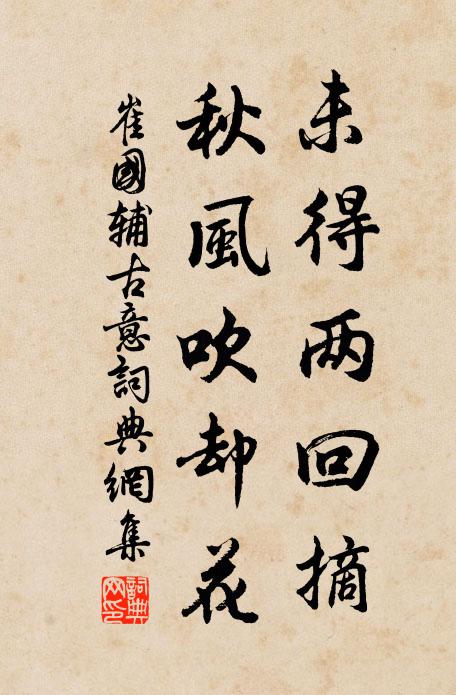 未得两回摘
秋風吹却花
崔國辅古意詞典網集
詞典网印